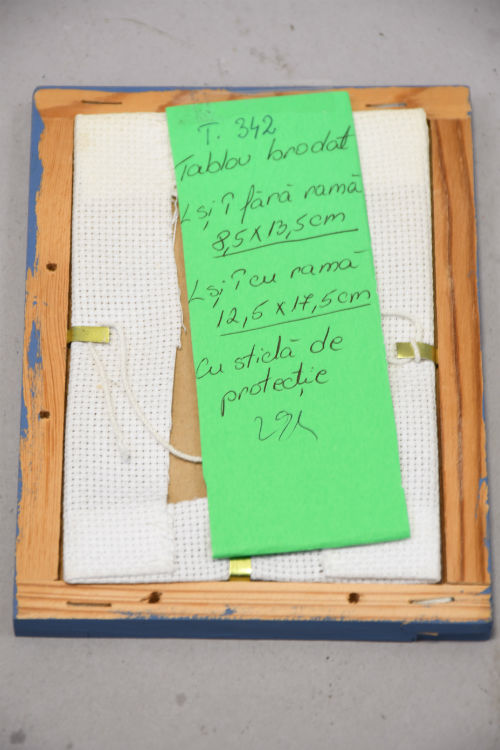 T. 342
Tablou brodat
L și Î fără ramă
8,5 x 13,5 cm
L și Î cu ramă
12,5 x 17,5 cm
Cu sticlă de
protecție